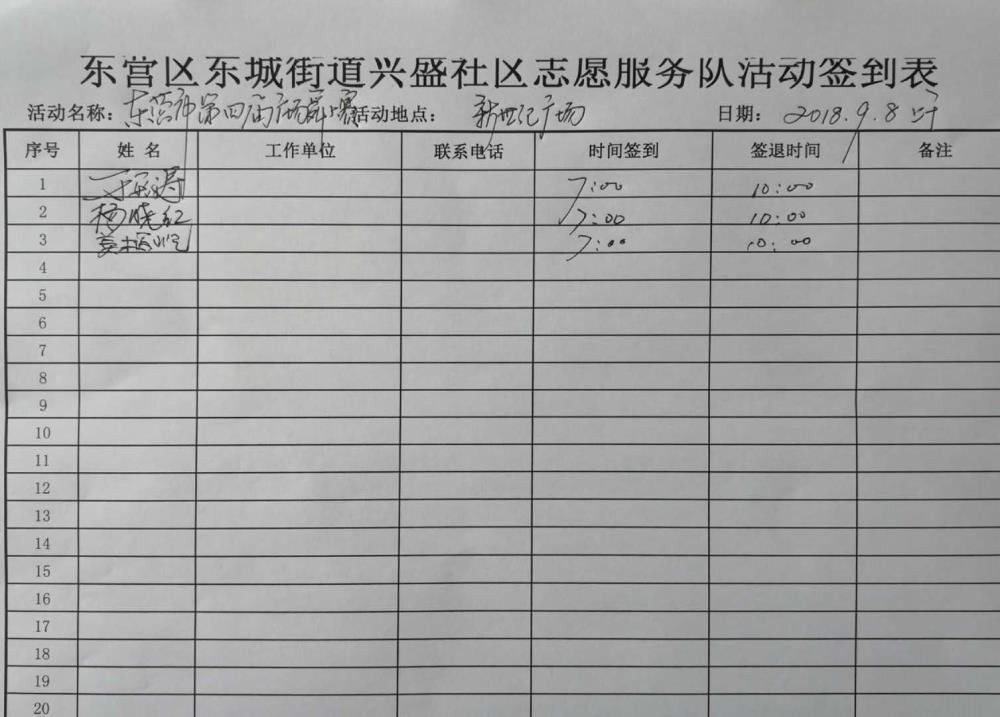 东营区东城街道兴盛社区志愿服务队活动签到表
活动名称：东营市第四届广场舞大赛 活动地点： 新世纪广场 日期： 2018.9.8 上午
序号 姓名 工作单位 联系电话 时间签到 签退时间 备注
1 7:00 10:00
2 杨晓红 7:00 10:00
3 7:00 10:00
4
5
6
7
8
9
10
11
12
13
14
15
16
17
18
19
20